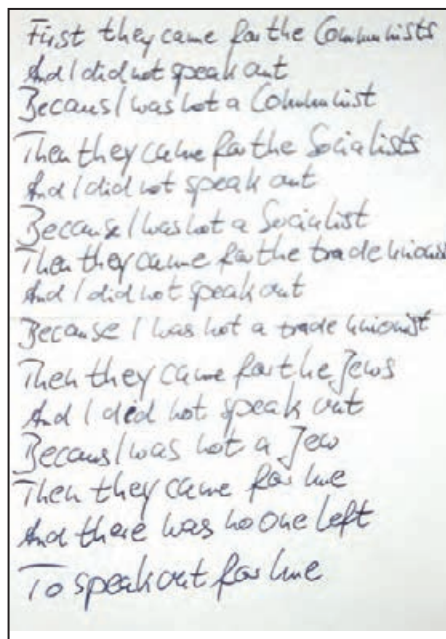 First they came for the Communists
And I did not speak out
Becaus I was not a Communist
Then they came for the Socialists
And I did not speak out
Because I was not a Socialist
Then they came for the trade unionist
And I did not speak out
Because I was not a trade unionist
Then they came for the Jews
And I did not speak out
Becaus I was not a Jew
Then they came for me
And there was no one left
To speak out for me